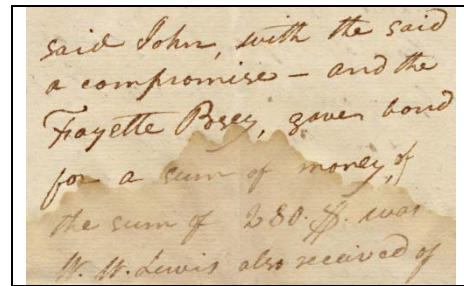 said John, with the said
a compromise - and the
Fayette Posey, gave bond
for a sum of money, of
the sum of 280.$. was
W. W. Lewis also received of